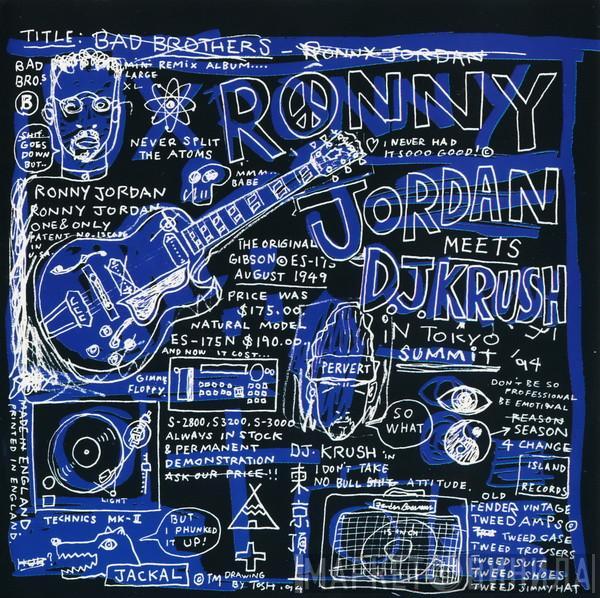 TITLE: BAD BROTHERS - RONNY JORDAN
BAD
BROS
B
MINI REMIX ALBUM....
LARGE
XL
SHIT
GOES
DOWN
BUT..
NEVER SPLIT
THE ATOMS
RONNY
I NEVER HAD
IT SOOO GOOD!©
MMM...
BABE
RONNY JORDAN
RONNY JORDAN
ONE & ONLY
PATENT
IN
U.S.A.
JORDAN
MEETS
DJ KRUSH
IN TOKYO
SUMMIT '94
THE ORIGINAL
GIBSON © ES-175
AUGUST 1949
PRICE WAS
$175.00.
NATURAL MODEL
ES-175N $190.00.
AND NOW IT COST...
GIMME
FLOPPY.
PERVERT
SO
WHAT
DON'T BE SO
PROFESSIONAL
BE EMOTIONAL
REASON
SEASON
4 CHANGE
ISLAND
RECORDS
S-2800, S3200, S-3000
ALWAYS IN STOCK
& PERMANENT
DEMONSTRATION
ASK OUR PRICE!!
MADE IN ENGLAND
PRINTED IN ENGLAND.
LIGHT
TECHNICS MK-II
DJ. KRUSH in
I DON'T TAKE
NO BULL SHIT ATTITUDE.
東京
BUT
I PHUNKED
IT UP!
HUH?
JACKAL
©TM DRAWING
BY TOSH. '94
OLD
FENDER VINTAGE
TWEED AMPS ©
TWEED CASE
TWEED TROUSERS
TWEED SUIT
TWEED SHOES
TWEED JIMMY HAT